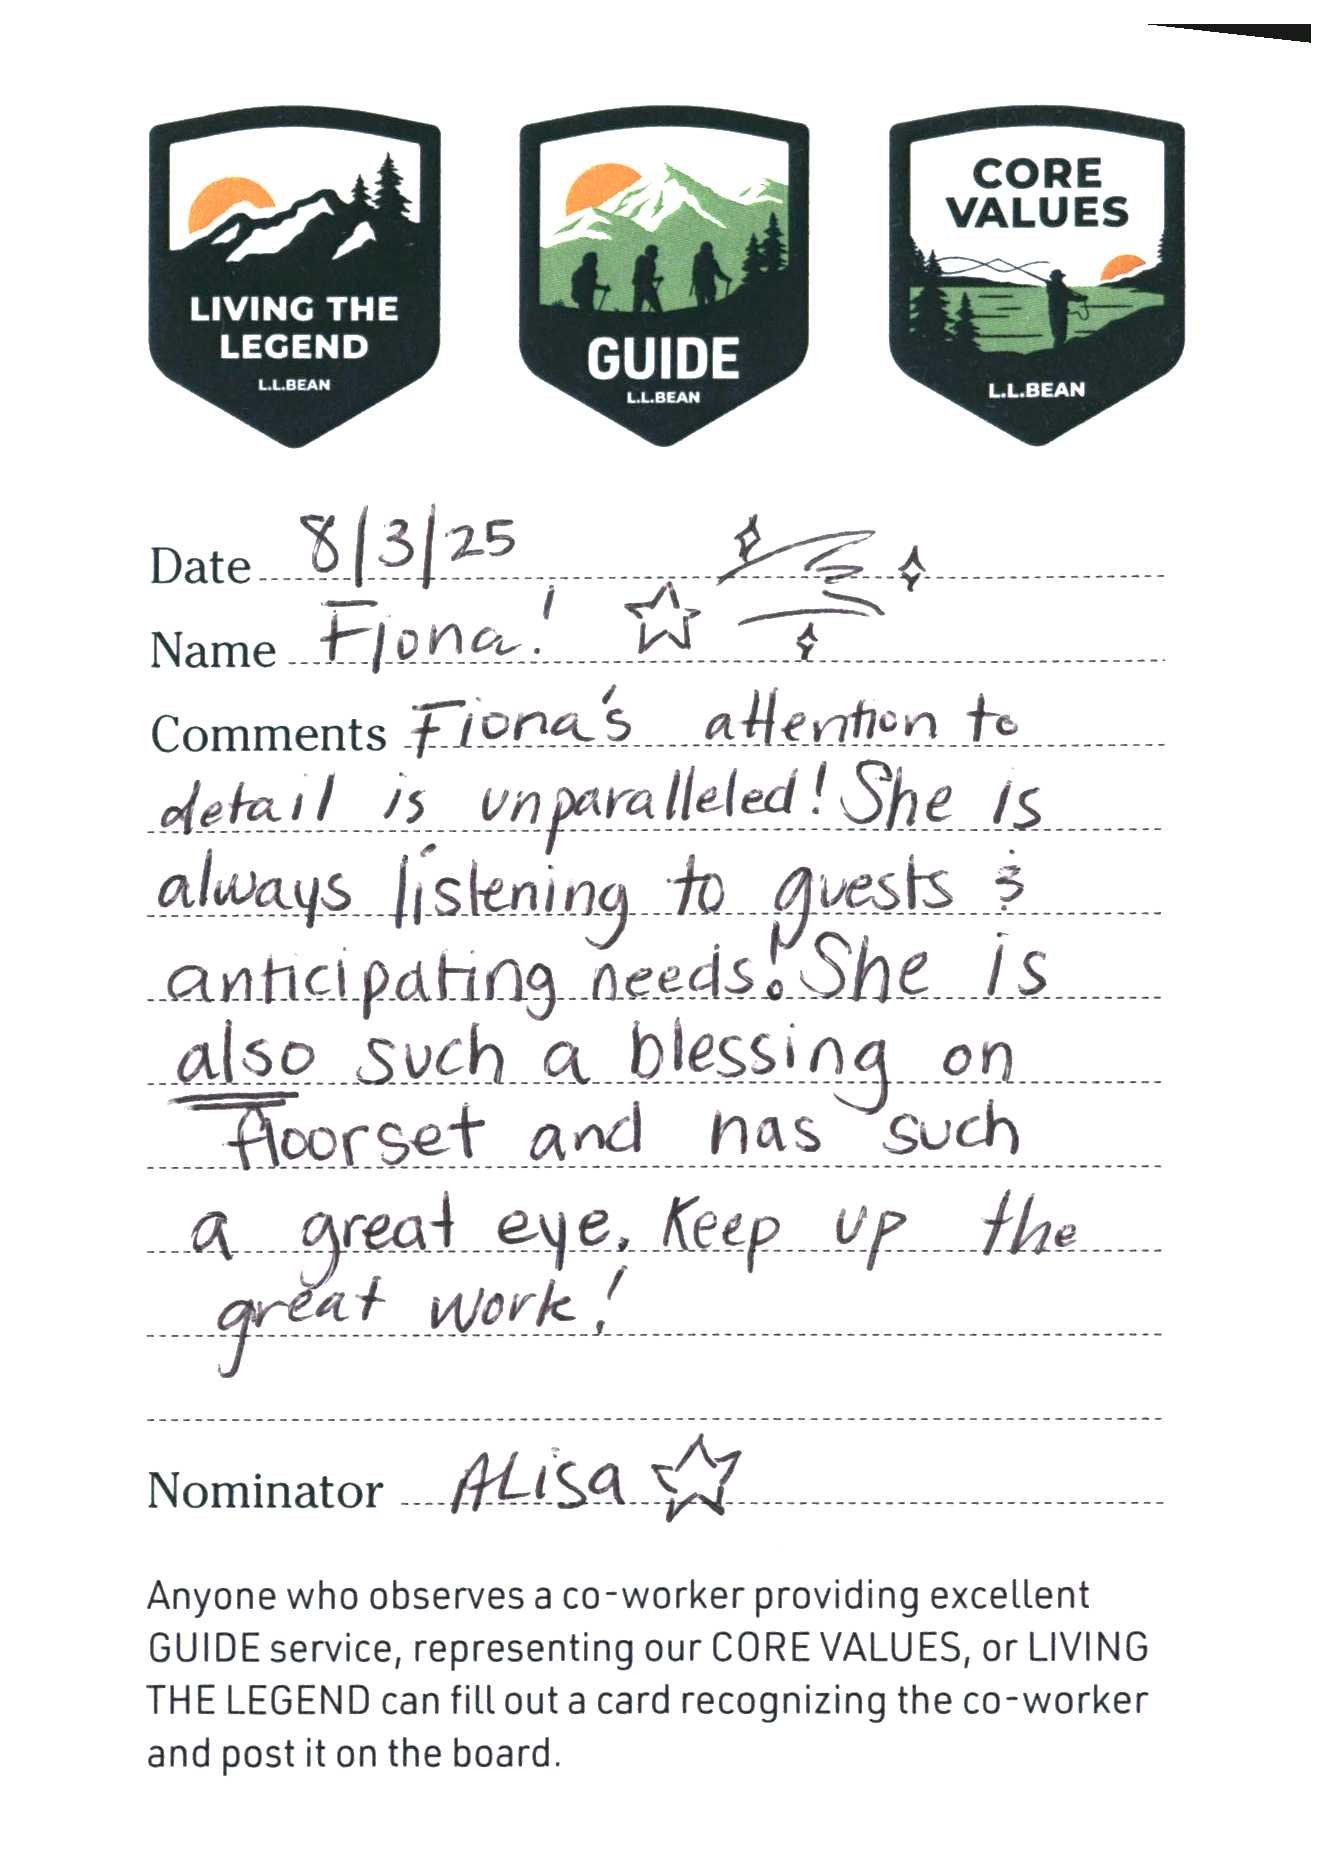 LIVING THE
LEGEND
L.L.BEAN
GUIDE
L.L.BEAN
CORE
VALUES
L.L.BEAN
Date 8/3/25
Name Fiona!
Comments Fiona's attention to
detail is unparalleled! She is
always listening to guests &
anticipating needs! She is
also such a blessing on
floorset and has such
a great eye. Keep up the
great work!
Nominator ALisa
Anyone who observes a co-worker providing excellent
GUIDE service, representing our CORE VALUES, or LIVING
THE LEGEND can fill out a card recognizing the co-worker
and post it on the board.